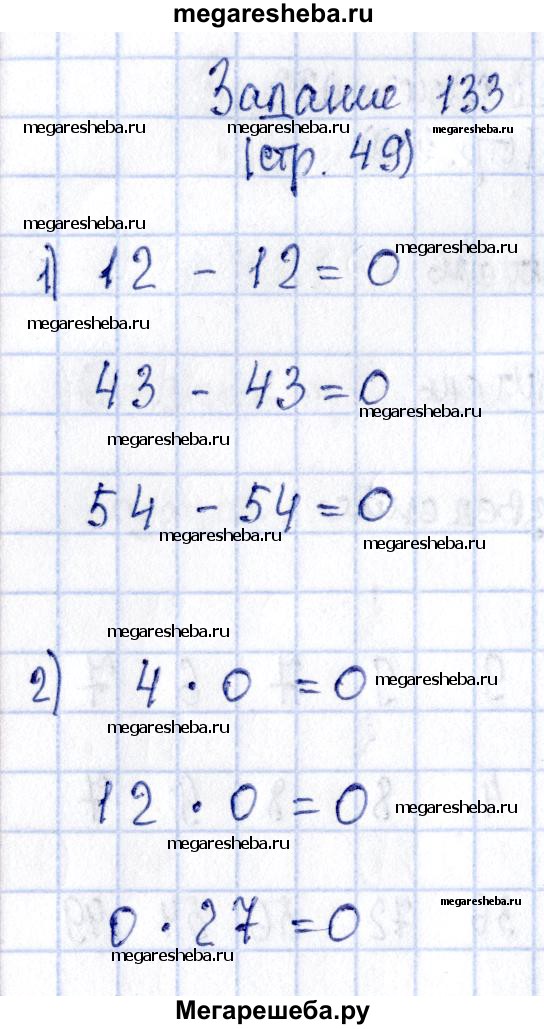 megaresheba.ru
Задание 133
megaresheba.ru megaresheba.ru megaresheba.ru
(стр. 49)
megaresheba.ru
megaresheba.ru
1) 12 - 12 = 0
megaresheba.ru
43 - 43 = 0
megaresheba.ru
megaresheba.ru
54 - 54 = 0
megaresheba.ru
megaresheba.ru
megaresheba.ru
2) 4 · 0 = 0
megaresheba.ru
megaresheba.ru
12 · 0 = 0
megaresheba.ru
megaresheba.ru
megaresheba.ru
0 · 27 = 0
megaresheba.ru
megaresheba.ru
Мегарешеба.ру